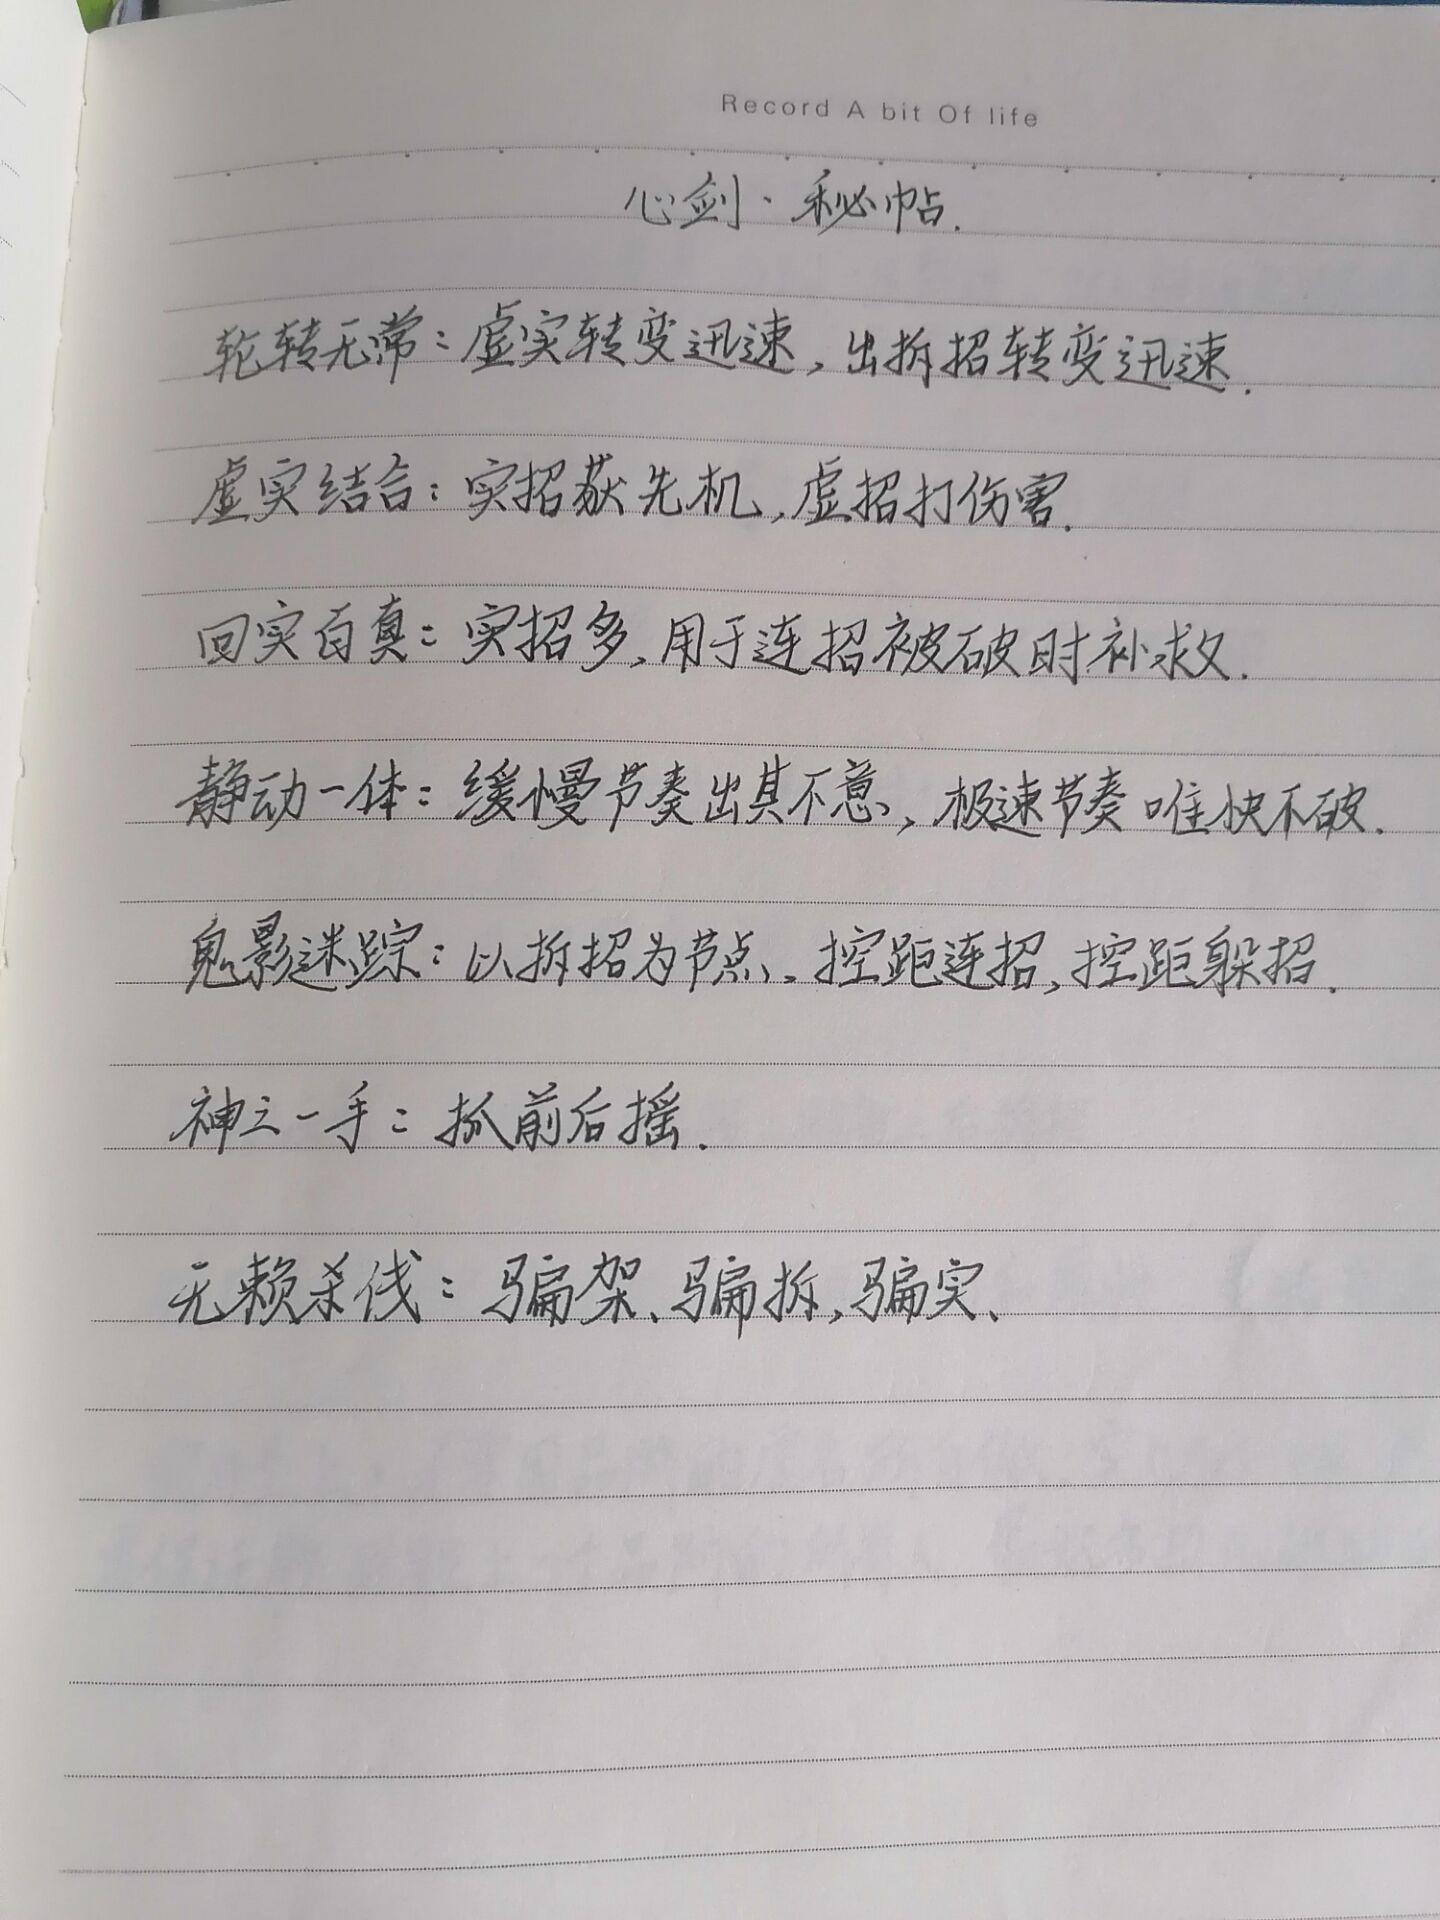 Record A bit Of life
心剑·秘帖.
轮转无常：虚实转变迅速，出拆招转变迅速.
虚实结合：实招获先机，虚招打伤害.
回实百真：实招多，用于连招被破时补救.
静动一体：缓慢节奏出其不意，极速节奏唯快不破.
鬼影迷踪：以拆招为节点、控距连招，控距躲招.
神之一手：抓前后摇.
无赖杀伐：骗架、骗拆，骗实、